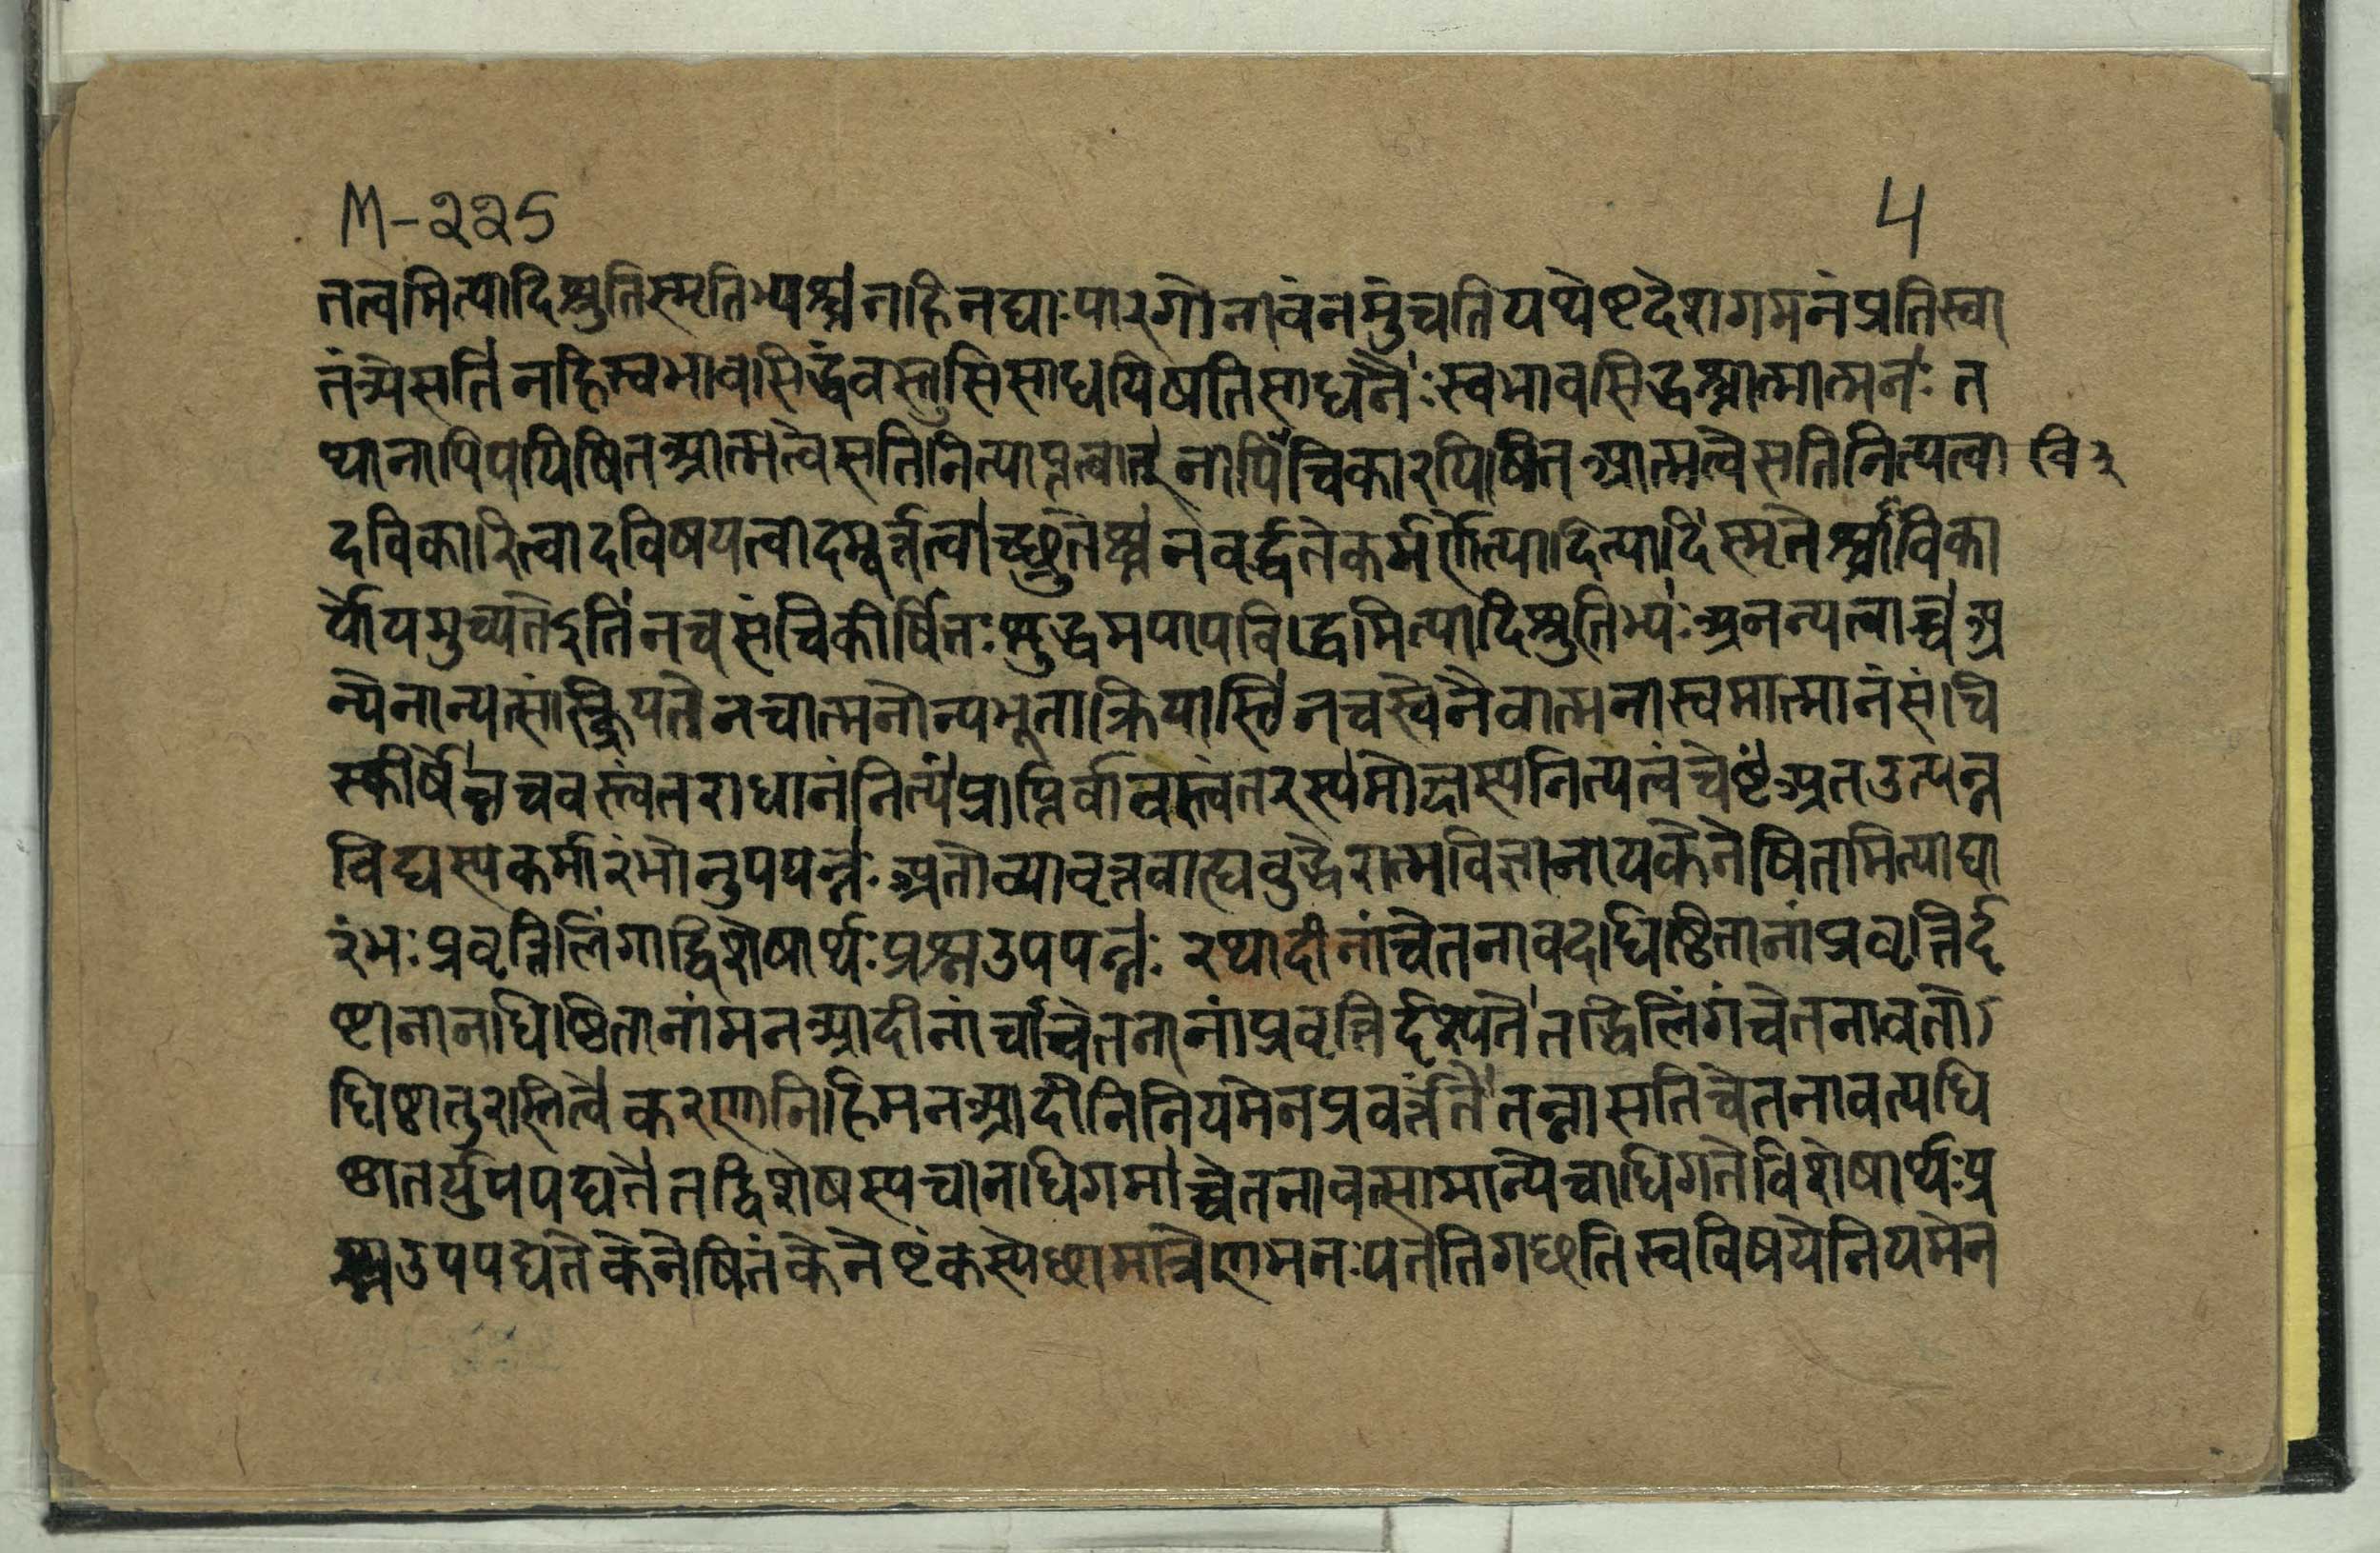 M-225
4
तत्वमित्यादिश्रुतिस्मृतिभ्यश्च नहिनद्याःपारगोनावंनमुंचतियथेष्टदेशगमनंप्रतिस्वा
तंत्र्येसति नहिस्वभावसिद्धंवस्तुसिसाधयिषतिसाधनैः स्वभावसिद्धश्चात्मात्मनः त
थानापिपयिषितआत्मत्वेसतिनित्याप्तत्वात् नापिविचिकारयिषितआत्मत्वेसतिनित्यत्वा
दविकारित्वादविषयत्वादमूर्त्तत्वाच्छ्रुतेश्च नवर्द्धतेकर्मणेत्यादित्यादिस्मृतेश्चाविका
र्योयमुच्यतेइति नचसंचिकीर्षितः शुद्धमपापविद्धमित्यादिश्रुतिभ्यः अनन्यत्वाच्च अ
न्येनान्यत्संस्क्रियते नचात्मनोन्यभूताक्रियास्ति नचस्वेनैवात्मनास्वमात्मानंसंचि
स्कीर्षेत् नचवस्त्वंतराधानंनित्यंप्राप्तिर्वावस्त्वंतरस्य मोक्षस्यनित्यत्वंचेष्टं अतउत्पन्न
विद्यस्यकर्मारंभोनुपपन्नः अतोव्यावृत्तबाह्यबुद्धेरात्मविज्ञानायकेनेषितमित्याद्या
रंभः प्रवृत्तिलिंगाद्विशेषार्थः प्रश्नउपपन्नः रथादीनांचेतनावदधिष्ठितानांप्रवृत्तिर्दृ
ष्टानानधिष्ठितानांमनआदीनांचाचेतनानांप्रवृत्तिर्दृश्यते तद्धिलिंगंचेतनावतोऽ
धिष्ठातुरस्तित्वे करणानिहिमनआदीनिनियमेनप्रवर्त्तंते तन्नासतिचेतनावत्यधि
ष्ठातर्युपपद्यते तद्विशेषस्यचानधिगमाच्चेतनावत्सामान्येचाधिगतेविशेषार्थःप्र
श्नउपपद्यतेकेनेषितंकेनेष्टंकस्येछामात्रेणमनःपततिगछतिस्वविषयेनियमेन